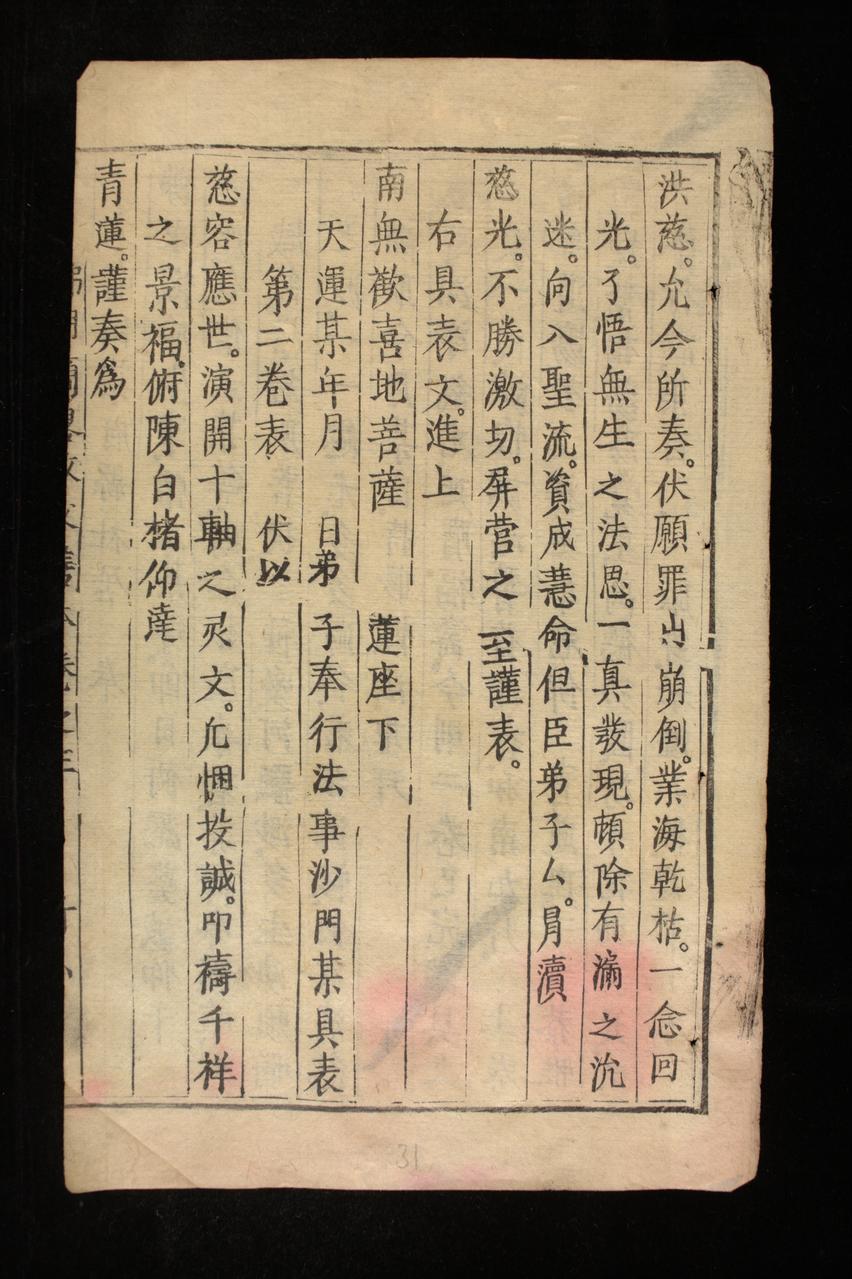 洪慈。允今所奏。伏願罪山崩倒。業海乾枯。一念回
光。了悟無生之法思。一真發現。頓除有漏之沉
迷。向入聖流。資成慧命但臣弟子厶。冐瀆
慈光。不勝激切。屏营之至謹表。
右具表文。進上
南無歡喜地菩薩 蓮座下
天運某年月 日弟子奉行法事沙門某具表
第二卷表 伏以
慈容應世。演開十軸之灵文。允悃投誠。叩禱千祥
之景福。俯陳白楮仰達
青蓮。謹奏爲
卷之三
31